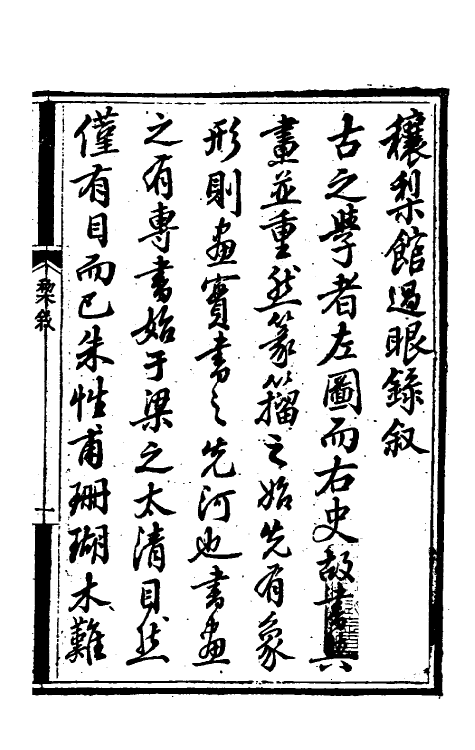 穰棃館過眼録叙
古之學者左圖而右史故書與
畫並重然篆籀之始先有象
形則畫實書之先河也書畫
之有專書始于梁之太清目然
僅有目而已朱性甫珊瑚木難
棃叙
一